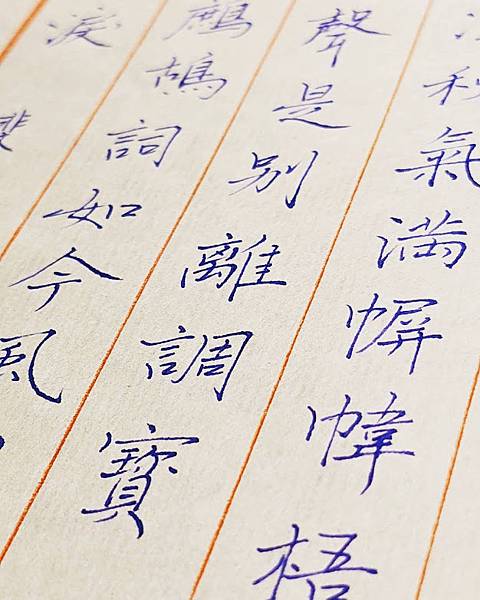 秋氣滿幈幃梧
聲是別離調寶
鷓鴣詞如今風
淚